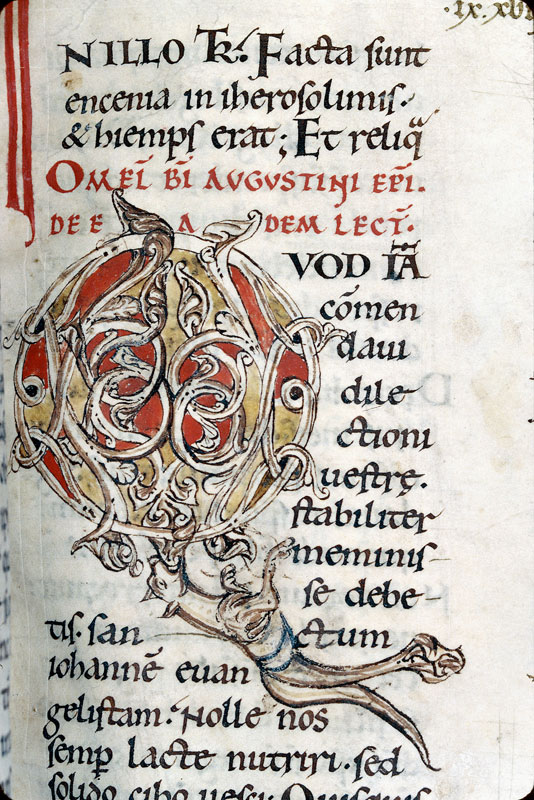 ·ix·xvi
NILLO T̄R. Facta sunt
encenia in iherosolimis.
& hiemps erat; Et reliq̄
OMEL̄ B̄I AVGVSTINI EP̄I.
DE EADEM LECT̄.
VOD IĀ
cōmen
daui
dile
ctioni
uestrę.
stabiliter
meminis-
se debe-
tis. sanctum
iohannē euan
gelistam. Nolle nos
semp̄ lacte nutriri. sed
solido cibo uesci. Quisquis